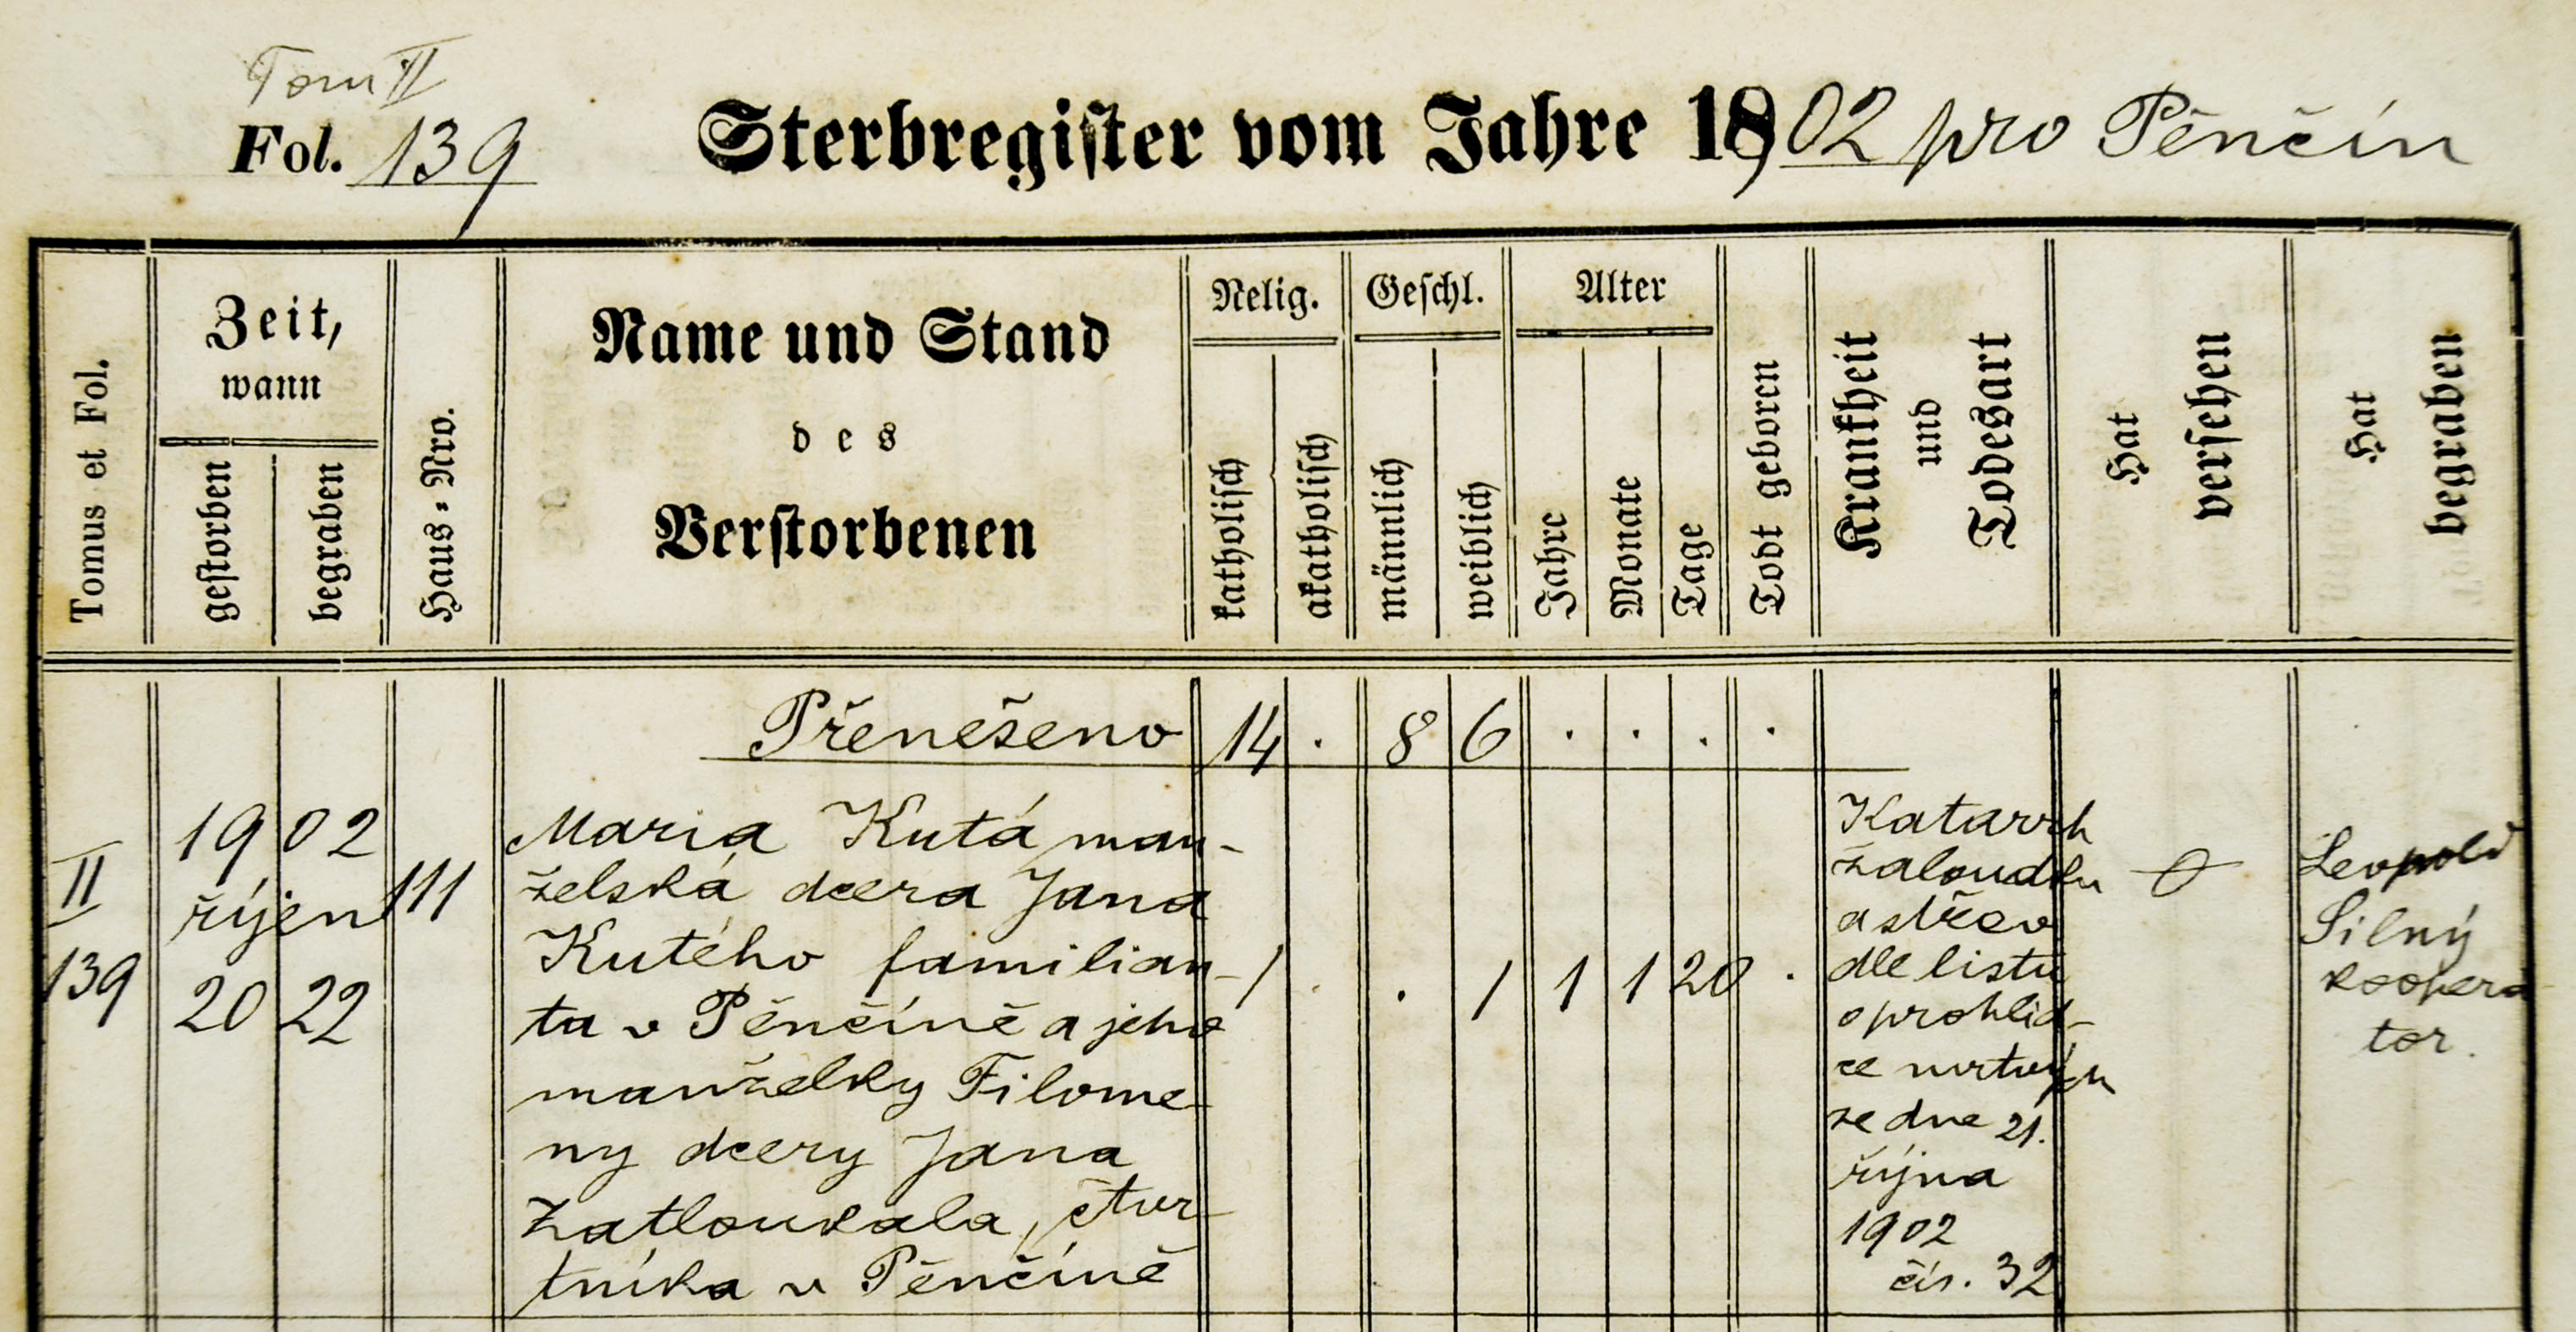 Tom II
Fol. 139 Sterbregister vom Jahre 1902 pro Pěnčín
Tomus et Fol.
Zeit,
wann
gestorben
begraben
Haus-Nro.
Name und Stand
des
Verstorbenen
Relig.
katholisch
akatholisch
Geschl.
männlich
weiblich
Alter
Jahre
Monate
Tage
Todt geboren
Krankheit
und
Todesart
Hat
versehen
Hat
begraben
Přenešeno 14 . 8 6 . . . .
II
139
1902
říjen
20 22
111
Maria Kutá man-
želská dcera Jana
Kutého familian-
ta v Pěnčíně a jeho
manželky Filome-
ny dcery Jana
Zatloukala, čtvr-
tníka v Pěnčíně
1 . . 1 1 1 20 .
Katarrh
žaloudku
a střev
dle listu
o prohlíd-
ce mrtvých
ze dne 21.
října
1902
čís. 32
Leopold
Silný
koopera
tor.